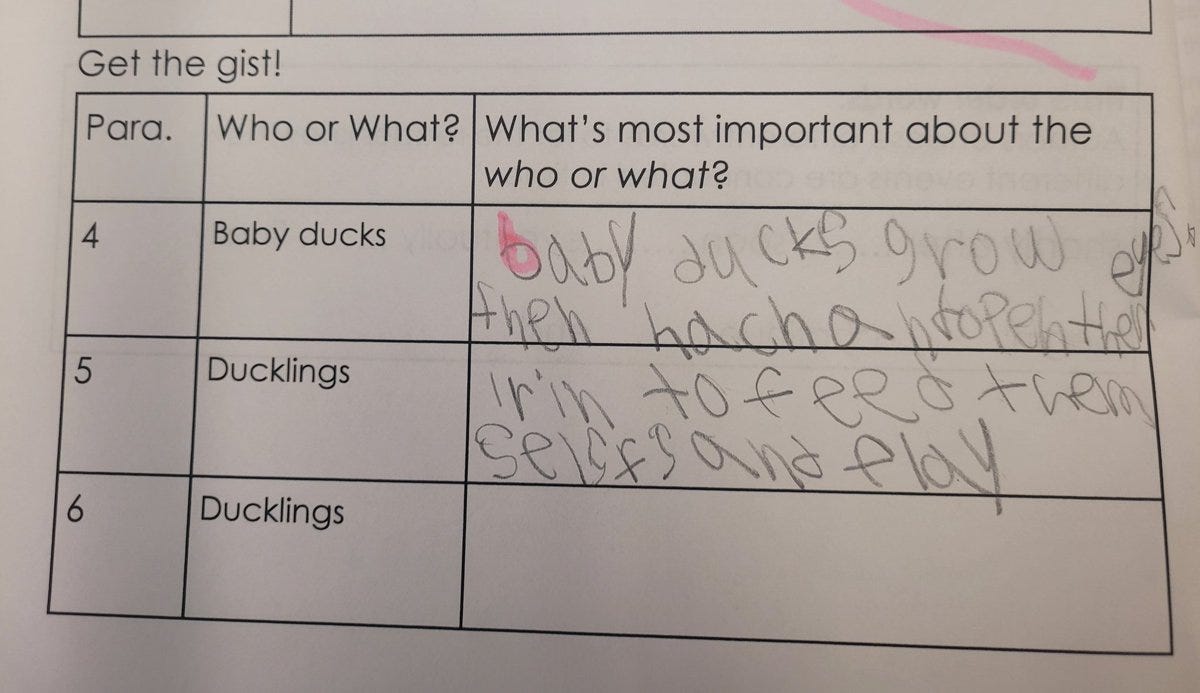 Get the gist!
Para. Who or What? What's most important about the
who or what?
4 Baby ducks baby ducks grow eyes
then hach to open ther
5 Ducklings lrin to feed them
selsfs and play
6 Ducklings